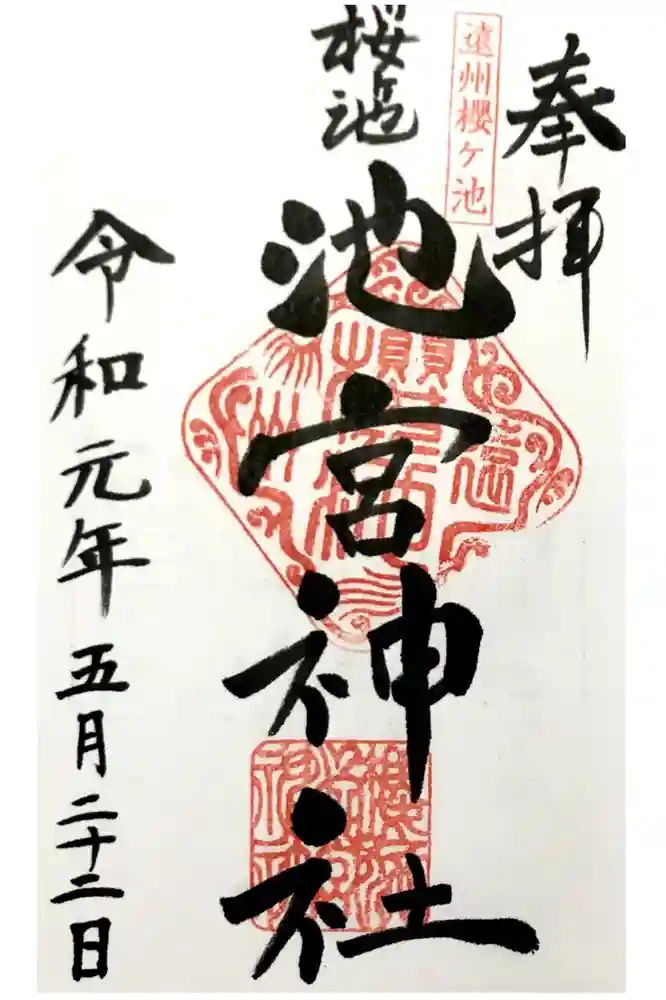 奉拝
遠州櫻ヶ池
桜ヶ池
池宮神社
令和元年五月二十二日